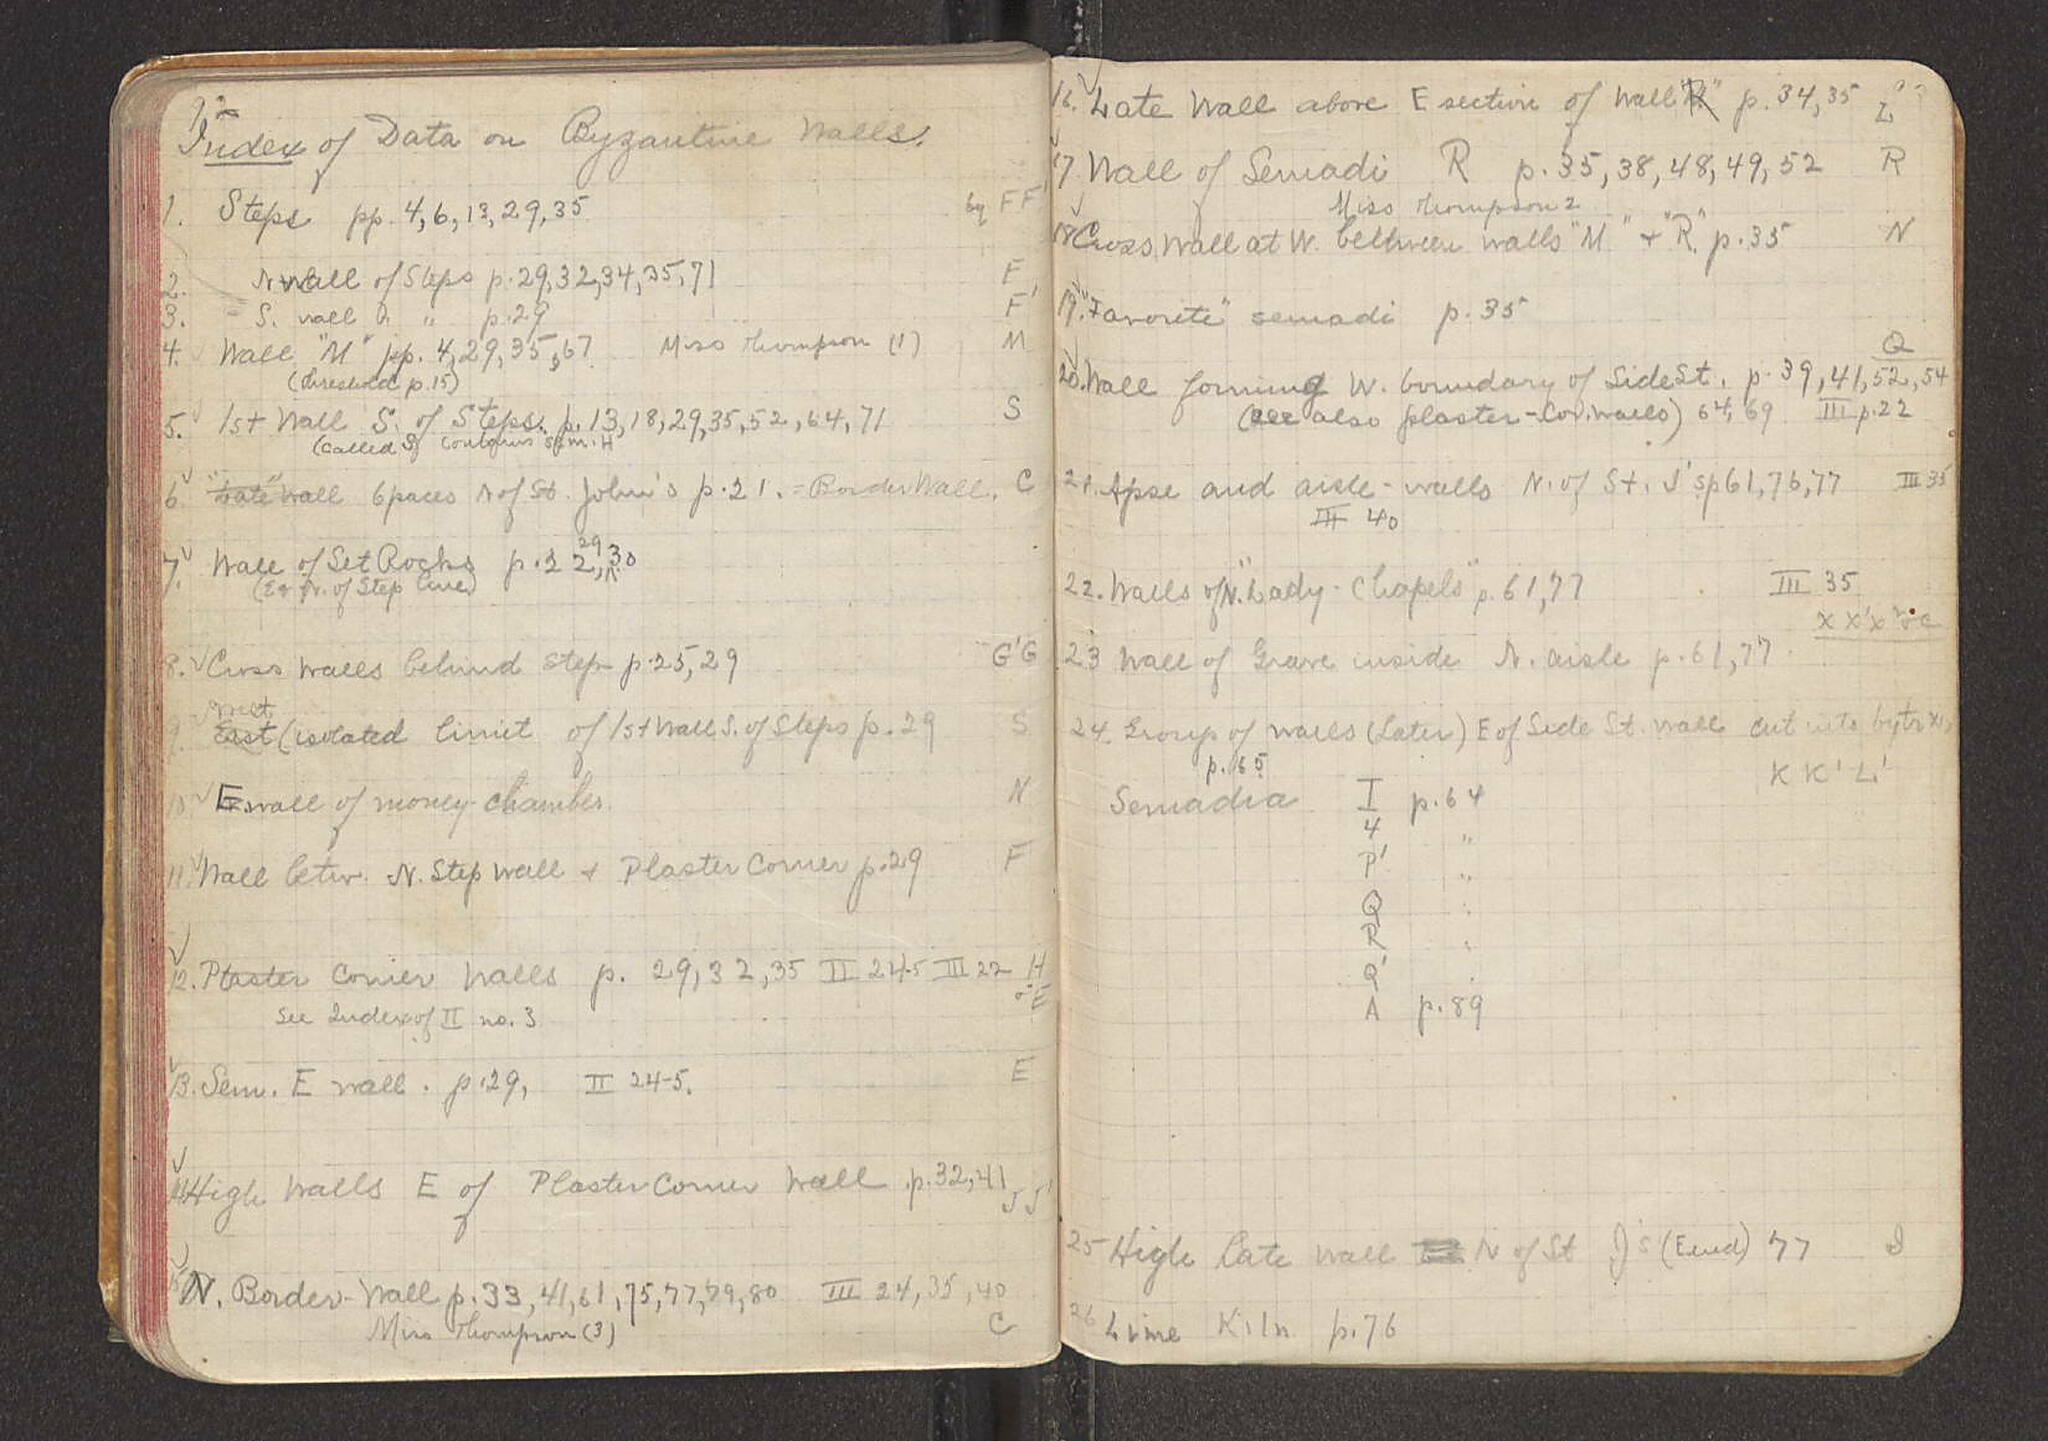 92
Index of Data on Byzantine Walls.
1. Steps pp. 4, 6, 13, 29, 35 by F F'
2. N wall of Steps p. 29, 32, 34, 35, 71 F
3. S. wall " " p. 29 F'
4. Wall "M" pp. 4, 29, 35, 67 Miss Thompson (1) M
(threshold p. 15)
5. 1st Wall S. of Steps. p. 13, 18, 29, 35, 52, 64, 71 S
(called S contains sem. H
6. "Late" Wall 6 paces N of St. John's p. 21. = Border Wall. C
7. Wall of Set Rocks p. 22, 29, 30
(E & N. of Step line)
8. Cross Walls behind Step p. 25, 29 G' G
West
9. East (isolated limit of 1st Wall S. of Steps p. 29 S
10 E wall of money-chamber. N
11. Wall betw. N. Step Wall & Plaster Corner p. 29 F
12. Plaster Corner Walls p. 29, 32, 35 II 24-5 III 22 H
See Index of II no. 3 & E
13. Sem. E wall. p. 29, II 24-5. E
14 High Walls E of Plaster Corner Wall p. 32, 41 J J'
15 N. Border-Wall p. 33, 41, 61, 75, 77, 79, 80 III 24, 35, 40
Miss Thompson (3) C
16. Late Wall above E section of Wall "R" p. 34, 35 L"?
17 Wall of Semadi R p. 35, 38, 48, 49, 52 R
Miss Thompson 2
18 Cross Wall at W. between walls "M" & "R" p. 35 N
19. "Favorite" semadi p. 35
Q
20. Wall forming W. boundary of Side St. p. 39, 41, 52, 54
(see also plaster-cov. walls) 64, 69 III p. 22
21. Apse and aisle-walls N. of St. J's p 61, 76, 77 III 35
III 40
22. Walls of N. "Lady-Chapels" p. 61, 77 III 35
x x' x"
23 Wall of Grave inside N. aisle p. 61, 77.
24. Group of walls (Later) E of Side St. Wall cut into by
p. 65 K K' L'
Semadia I p. 64
4 "
P' "
Q "
R "
Q' "
A p. 89
25 High Late Wall N of St J's (E end) 77 I
26 Lime Kiln p. 76